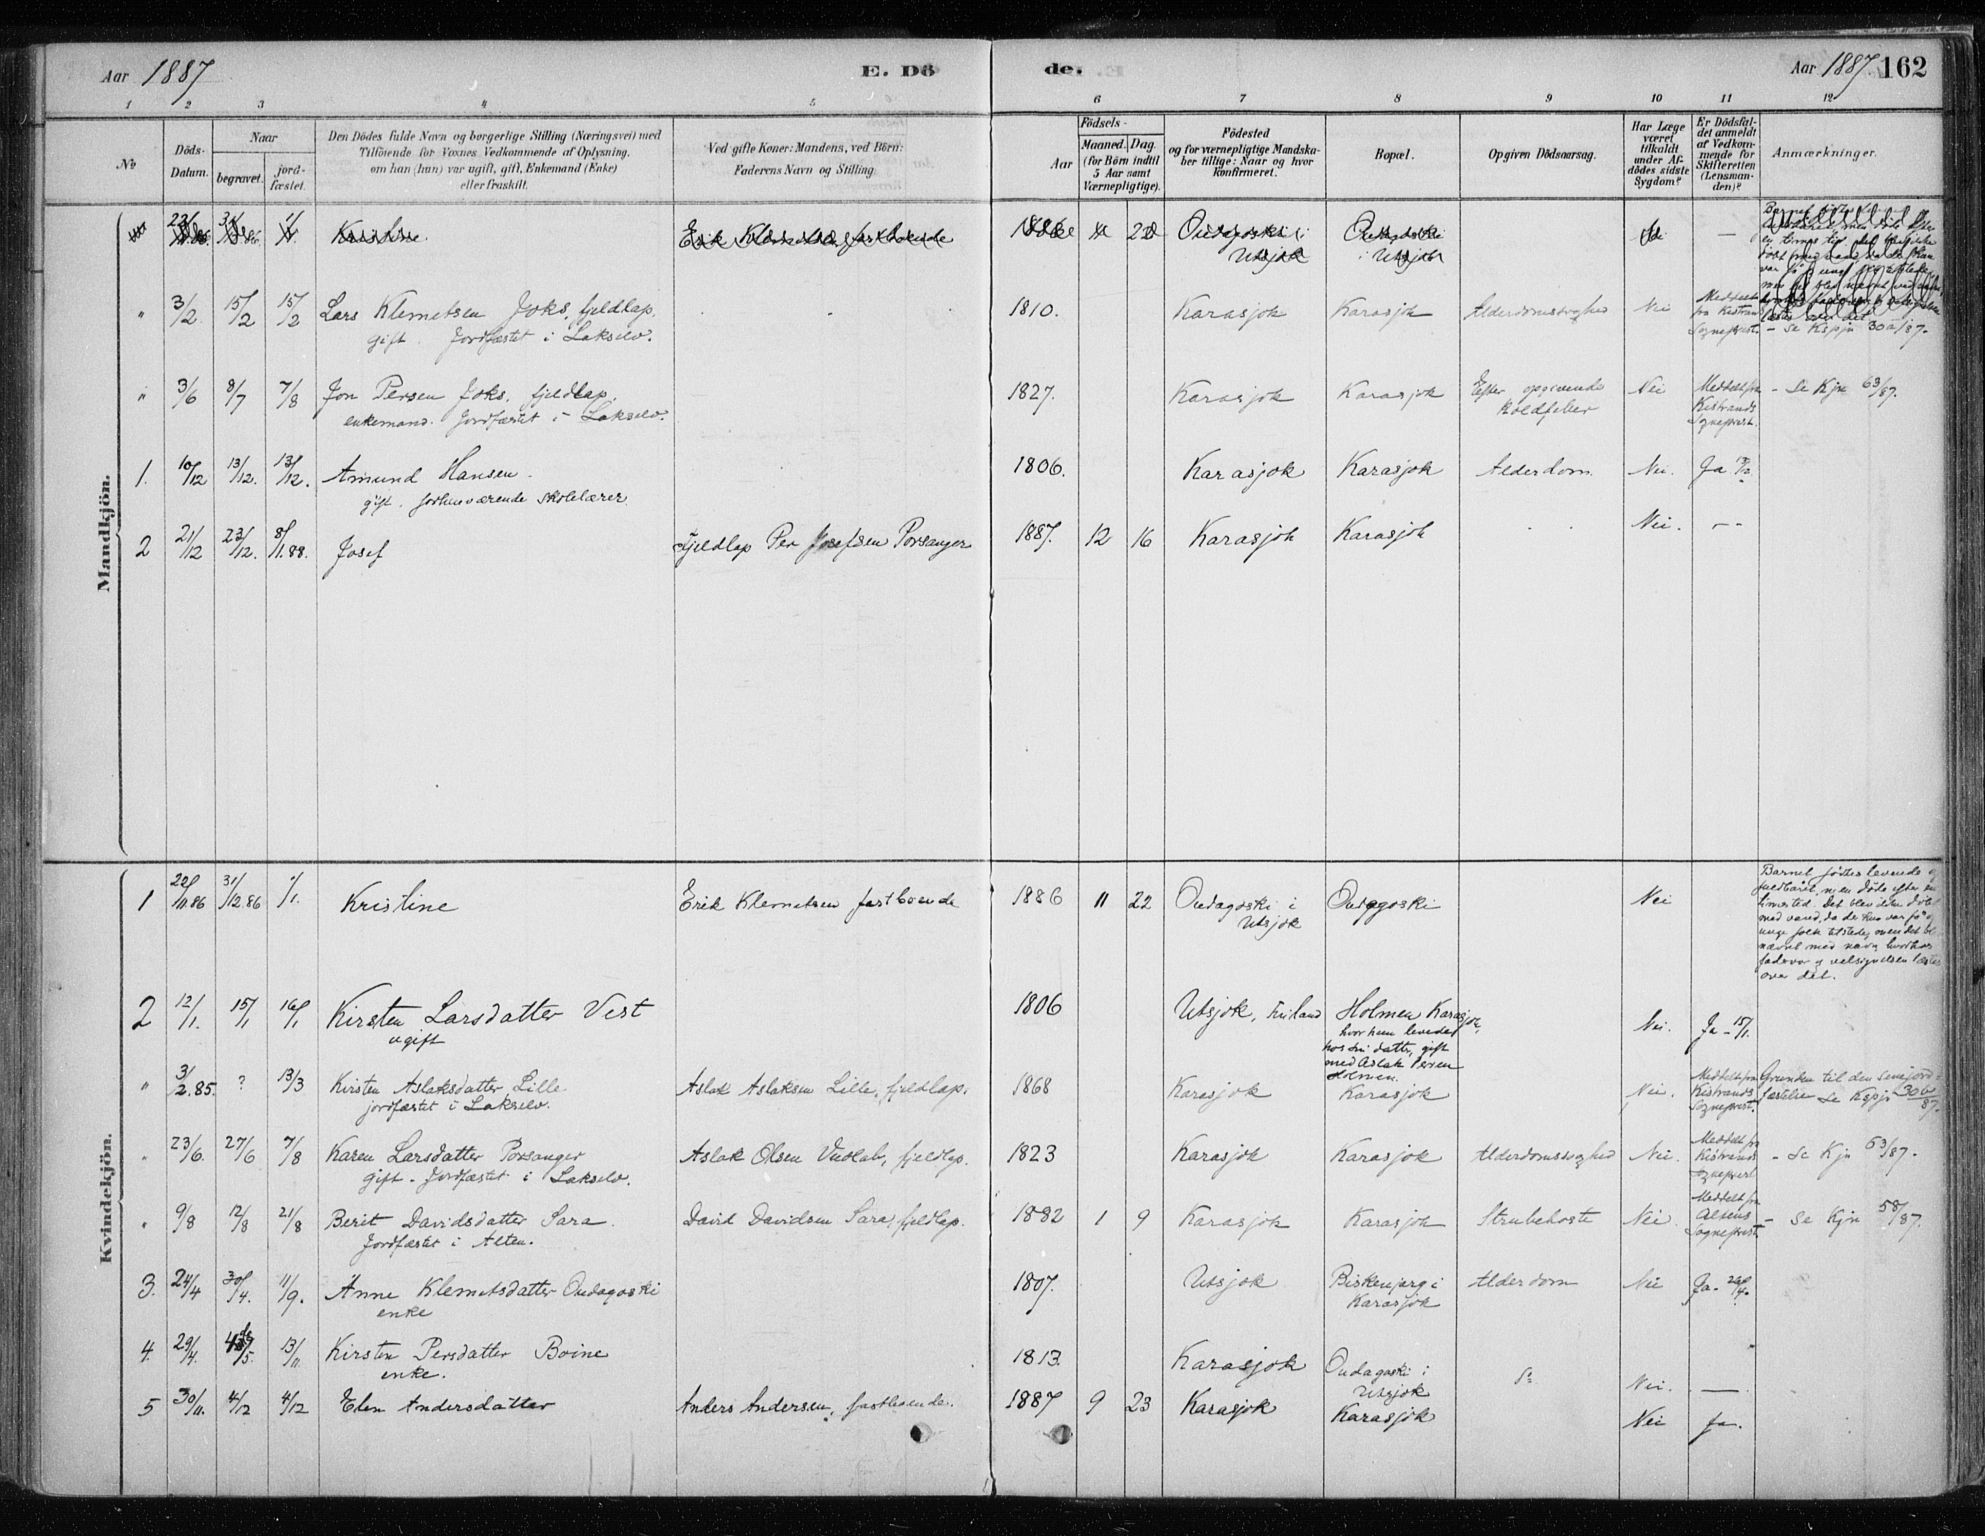 Aar 1887 E. Dö
de. Aar 1887 162
1 2 3 4 5 6 7 8 9 10 11 12
No
Döds-Datum.
Naar
begravet.
jord-fæstet.
Den Dödes fulde Navn og borgerlige Stilling (Næringsvei) med
Tilföiende for Voxnes Vedkommende af Oplysning,
om han (hun) var ugift, gift, Enkemand (Enke)
eller fraskilt.
Ved gifte Koner: Mandens, ved Börn:
Faderens Navn og Stilling
Födsels-
Aar
Maaned. Dag.
(for Börn indtil
5 Aar samt
Værnepligtige).
Födested
og for værnepligtige Mandska-
ber tillige: Naar og hvor
konfirmeret.
Bopæl.
Opgiven Dödsaarsag.
Har Læge
været
tilkaldt
under Af-
dödes sidste
Sygdom?
Er Dödsfal-
det anmeldt
af Vedkom-
mende for
Skifteretten
(Lensman-
den)?
Anmærkninger.
Mandkjön.
Erik Klemetsen fastboende Oudagoski i Utsjok
" 3/2 15/2 15/2 Lars Klemetsen Joks, fjeldlap. 1810. Karasjok Karasjok Alderdomssvaghed Nei Meddelt fra Kistrands Sogneprest. - Se Kspjn 30a/87.
gift. Jordfæstet i Lakselv.
" 3/6 8/7 7/8 Jon Persen Joks, fjeldlap. 1827. Karasjok Karasjok Efter opgivende Koldfeber Nei Meddelt fra Kistrands Sogneprest. - Se Kjn 63/87.
enkemand. Jordfæstet i Lakselv.
1. 10/12 13/12. 13/12. Amund Hansen. 1806. Karasjok Karasjok Alderdom. Nei. Ja
gift. forhenværende skolelærer
2 21/12 23/12. 8/1.88. Josef Fjeldlap Per Josefsen Porsanger 1887. 12 16 Karasjok Karasjok Nei. --
Kvindekjön.
1 22/11.86 31/12.86 1/1. Kristine Erik Klemetsen fastboende 1886 11 22 Oudagoski i Utsjok Oudagoski Nei
Barnet födtes levende
fuldbåret, men döde efter en
times tid. Det blev ikke döbt
med vand, da de kun var få og
unge folk tilstede, men det bl
nævnt med navn hvorhos
fadervor og velsignelsen læstes
over det.
2 12/1. 15/1 16/1 Kirsten Larsdatter Vest 1806 Utsjok, Finland Holmen Karasjok, Nei. Ja - 15/1.
ugift
hvor hun levede
hos sin datter, gift
med Aslak Persen
Holmen.
" 3/2.85. ? 13/3 Kirsten Aslaksdatter Lille Aslak Aslaksen Lille, fjeldlap. 1868 Karasjok Karasjok Nei. Meddelt fra Kistrands Sogneprest. Grunden til den sene jord-
fæstelse se Kspjn 30b/87.
jordfæstet i Lakselv.
" 23/6. 27/6 7/8 Karen Larsdatter Porsanger Aslak Olsen Vuolab, fjeldlap. 1823 Karasjok Karasjok Alderdomssvaghed Nei. Meddelt fra Kistrands Sogneprest - Se Kjn 63/87.
gift - Jordfæstet i Lakselv.
" 9/8 12/8 21/8 Berit Davidsdatter Sara. David Davidsen Sara, fjeldlap. 1882 1 9 Karasjok Karasjok Strubehoste Nei Meddelt fra Altens Sogneprest. - Se Kjn 58/87.
Jordfæstet i Alten.
3. 24/4 30/4. 11/9. Anne Klemetsdatter Oudagoski 1807. Utsjok Biskenjarg i Karasjok Alderdom Nei Ja. 29/4.
enke
4. 29/4. 13/11. Kirsten Persdatter Boine 1813. Karasjok Oudagoski i Utsjok Nei. —
enke.
5 30/11. 4/12 4/12 Elen Andersdatter Anders Andersen, fastboende. 1887 9 23 Karasjok Karasjok Nei Ja.